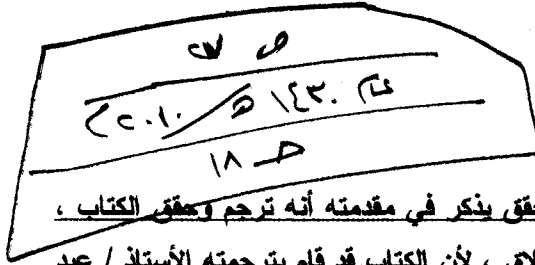 عام ١٤٣٠ هـ / ٢٠١٠ م
صـ ١٨
حقق يذكر في مقدمته أنه ترجم وحقق الكتاب ،
لأن الكتاب قد قام بترجمته الأستاذ / عبد